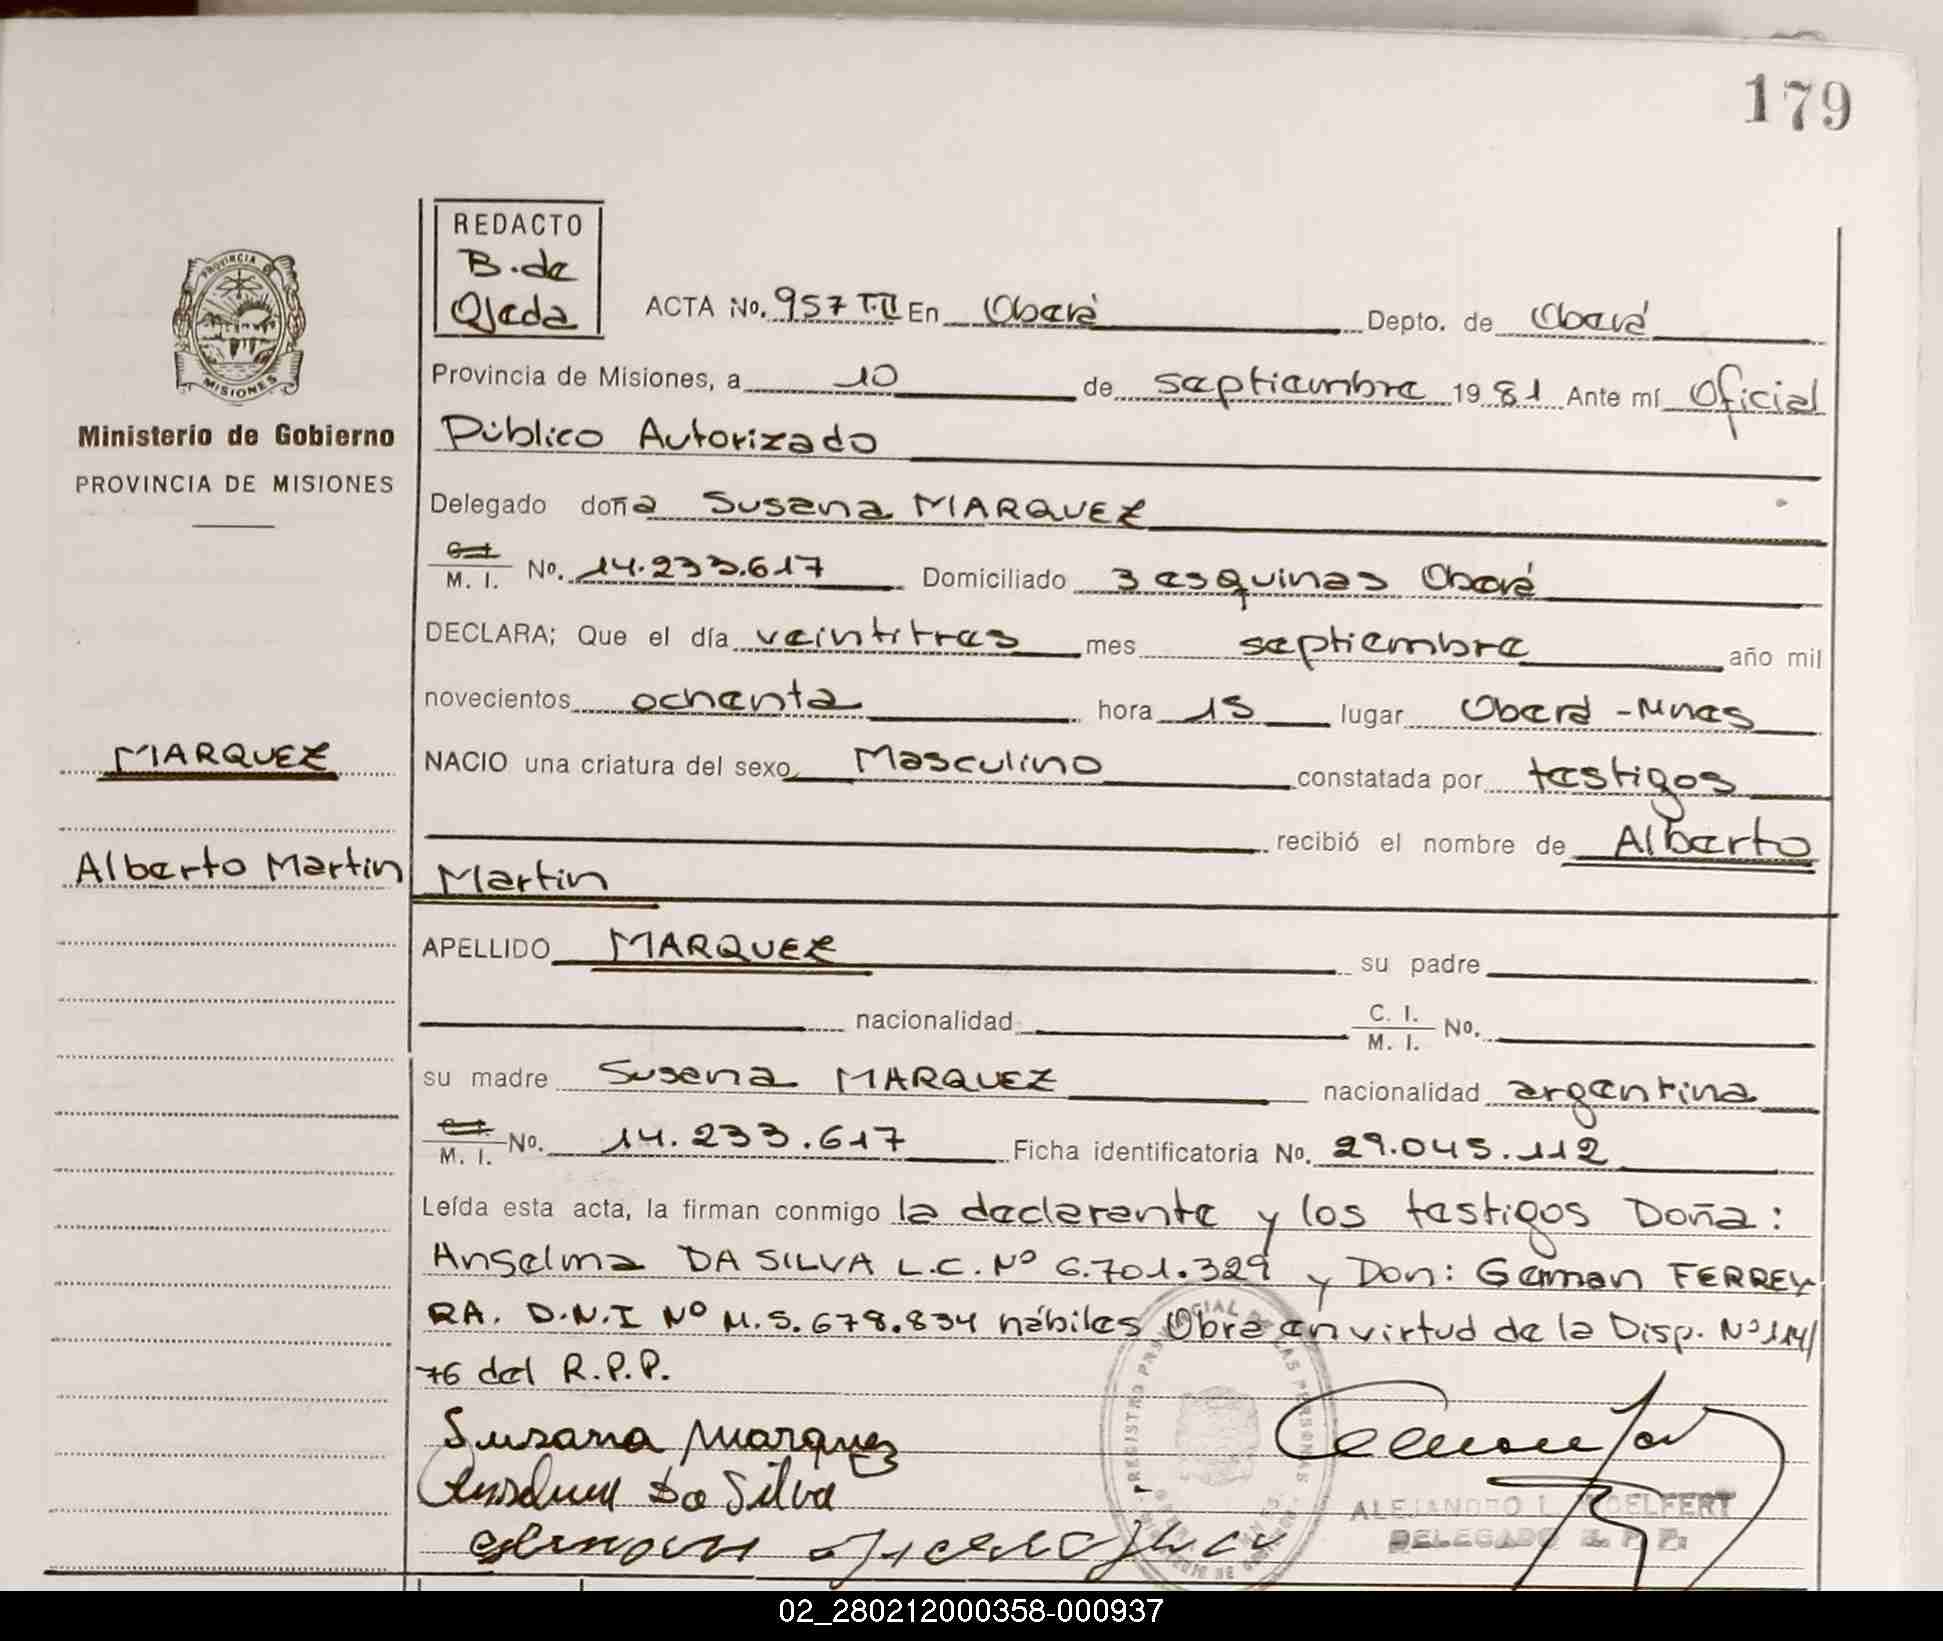 179
REDACTO
B. de
Ojeda
PROVINCIA DE
MISIONES
Ministerio de Gobierno
PROVINCIA DE MISIONES
ACTA No. 957 T.II En Oberá Depto. de Oberá
Provincia de Misiones, a 10 de septiembre 1981 Ante mí Oficial
Público Autorizado
Delegado doña Susana MARQUEZ
C.I. M. I. No. 14.233.617 Domiciliado 3 esquinas Oberá
DECLARA; Que el día veintitres mes septiembre año mil
novecientos ochenta hora 15 lugar Oberá - Mnes
MARQUEZ
NACIO una criatura del sexo Masculino constatada por testigos
recibió el nombre de Alberto
Alberto Martin
Martin
APELLIDO MARQUEZ su padre
nacionalidad C. I. M. I. No.
su madre Susana MARQUEZ nacionalidad argentina
C.I. M. I. No. 14.233.617 Ficha identificatoria No. 29.045.112
Leída esta acta, la firman conmigo la declarante y los testigos Doña:
Anselma DA SILVA L.C. Nº 6.701.329 y Don: German FERREY
RA. D.N.I Nº M.5.678.834 hábiles Obra en virtud de la Disp. Nº 114/
76 del R.P.P.
Susana Marquez
Da Silva
REGISTRO PROVINCIAL DE LAS PERSONAS
ALEJANDRO
DELEGADO R. P. P.
02_280212000358-000937